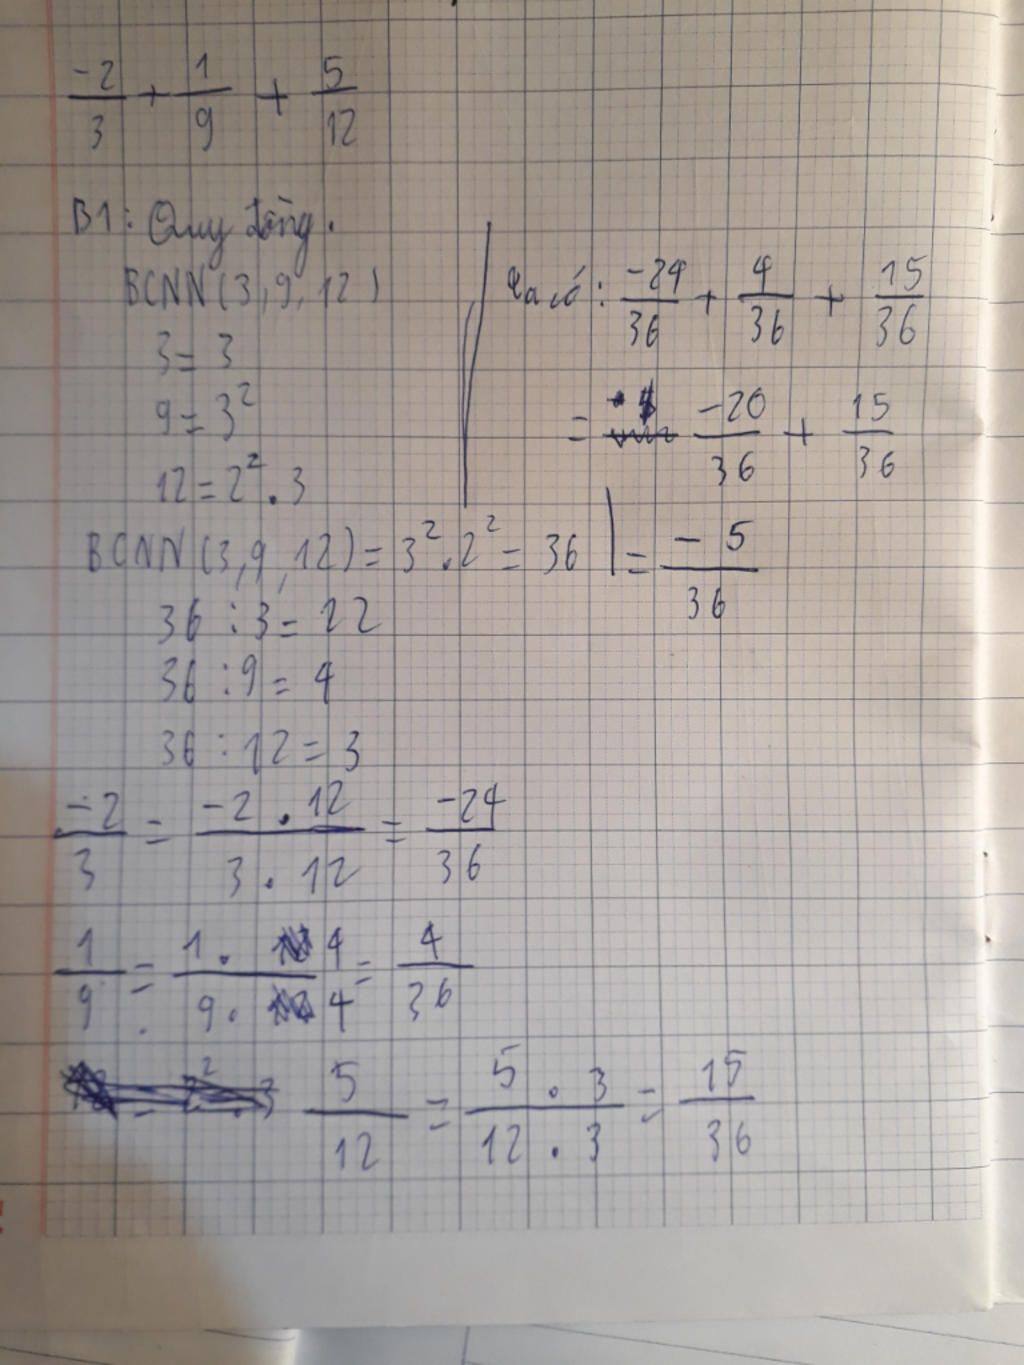 -2/3 + 1/9 + 5/12
B1: Quy đồng.
BCNN(3,9,12)
3 = 3
9 = 3²
12 = 2² . 3
BCNN(3,9,12) = 3² . 2² = 36
36 : 3 = 12
36 : 9 = 4
36 : 12 = 3
-2/3 = -2 . 12/3 . 12 = -24/36
1/9 = 1 . 4/9 . 4 = 4/36
5/12 = 5 . 3/12 . 3 = 15/36
Ta có: -24/36 + 4/36 + 15/36
= -20/36 + 15/36
= -5/36